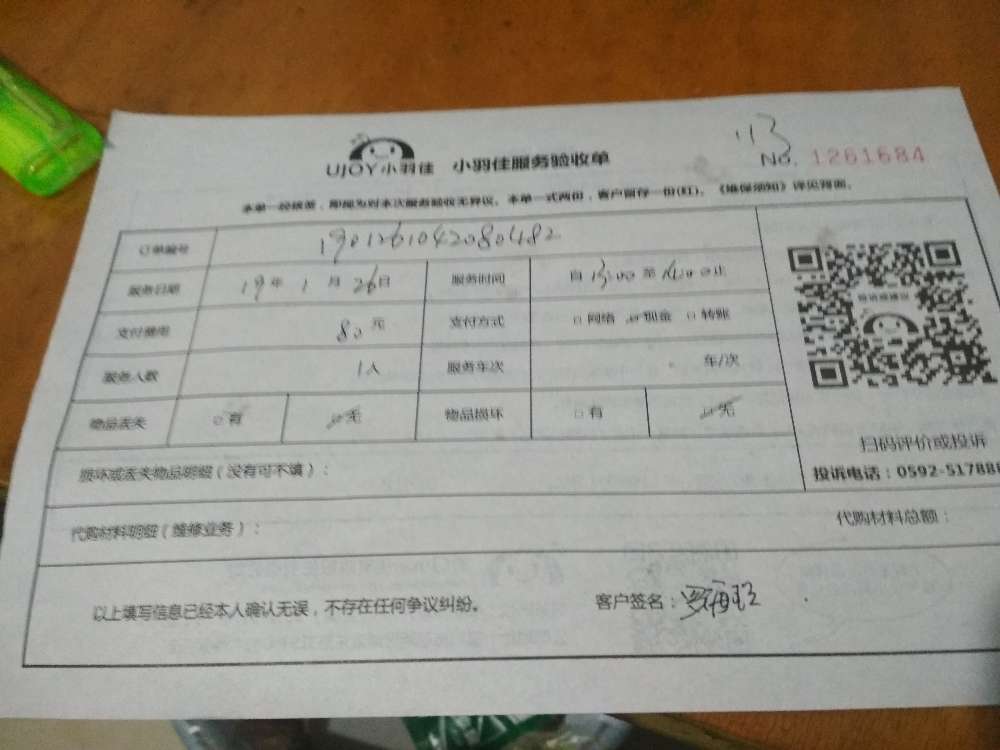 113
UJOY小羽佳 小羽佳服务验收单 No. 1261684
本单一经签署，即视为对本次服务验收无异议。本单一式两份，客户留存一份(红)。《维保须知》详见背面。
订单编号 1901261042080482
服务日期 19年1月26日 服务时间 自13:00至 止
支付费用 80元 支付方式 □网络 ☑现金 □转账
服务人数 1人 服务车次 车/次
物品丢失 □有 ☑无 物品损坏 □有 ☑无
扫码评价或投诉
投诉电话：0592-517888
损坏或丢失物品明细（没有可不填）：
代购材料明细（维修业务）： 代购材料总额：
以上填写信息已经本人确认无误，不存在任何争议纠纷。 客户签名：